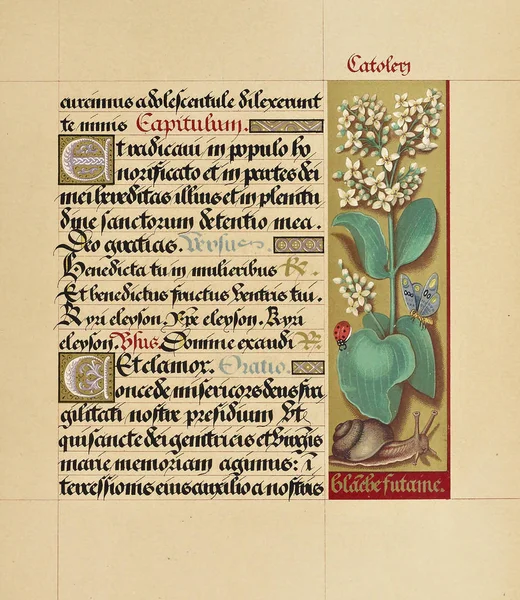 Catolerj
aurcimus adolescentule dilexerunt
te nimis Capitulum.
Et radicaui in populo ho
norificato et in partes dei
mei hereditas illius et in plenitu
dine sanctorum detentio mea.
Deo gratias. Versus.
Benedicta tu in mulieribus R.
Et benedictus fructus ventris tui.
Kyri eleyson. Xpe eleyson. Kyri
eleyson. Vsus. Domine exaudi R.
Et clamor. Oratio.
Concede misericors deus fra
gilitati nostre presidium Vt
qui sancte dei genitricis et virginis
marie memoriam agimus: i
terressionis eius auxilio a nostris
blāche futaine.